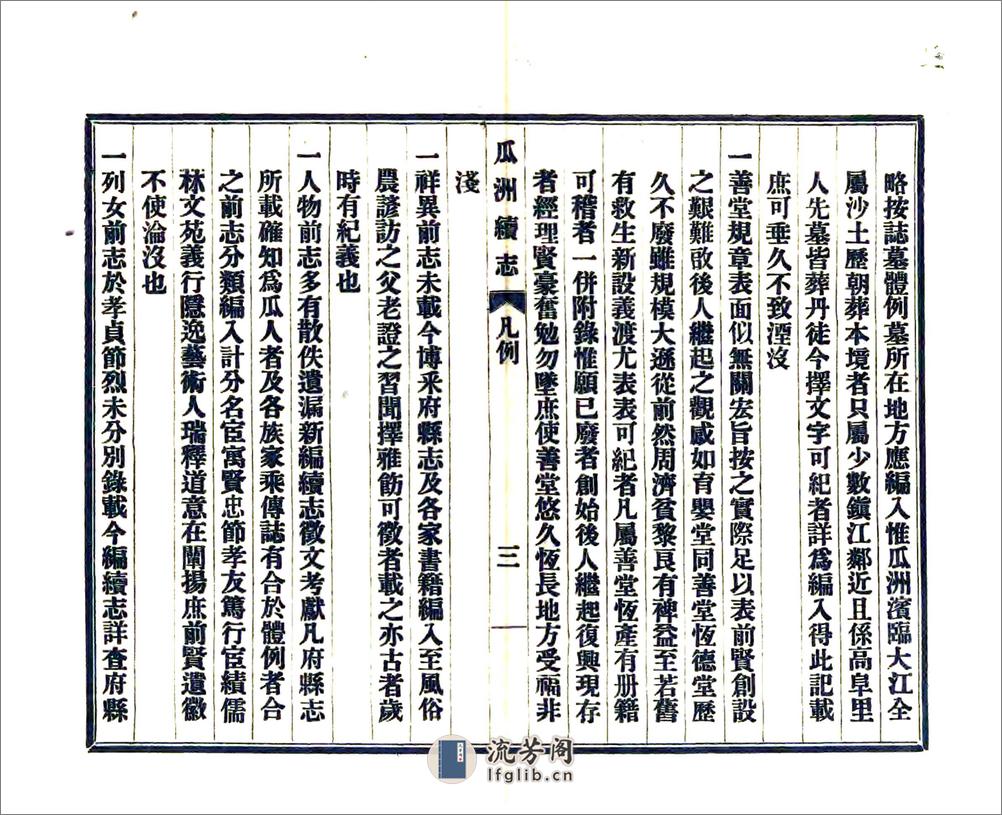 略按誌墓體例墓所在地方應編入惟瓜洲濱臨大江全
屬沙土歷朝葬本境者只屬少數鎭江鄰近且係高阜里
人先墓皆葬丹徒今擇文字可紀者詳爲編入得此記載
庶可垂久不致湮沒
一善堂規章表面似無關宏旨按之實際足以表前賢創設
之艱難啟後人繼起之觀感如育嬰堂同善堂恆德堂歷
久不廢雖規模大遜從前然周濟貧黎良有裨益至若舊
有救生新設義渡尤表表可紀者凡屬善堂恆產有册籍
可稽者一併附錄惟願已廢者創始後人繼起復興現存
者經理賢豪奮勉勿墜庶使善堂悠久恆長地方受福非
淺
瓜洲續志 凡例 三
一祥異前志未載今博采府縣志及各家書籍編入至風俗
農諺訪之父老證之習聞擇雅飭可徵者載之亦古者歲
時有紀義也
一人物前志多有散佚遺漏新編續志徵文考獻凡府縣志
所載確知爲瓜人者及各族家乘傳誌有合於體例者合
之前志分類編入計分名宦寓賢忠節孝友篤行宦績儒
林文苑義行隱逸藝術人瑞釋道意在闡揚庶前賢遺徽
不使淪沒也
一列女前志於孝貞節烈未分別錄載今編續志詳查府縣
流芳阁
lfglib.cn